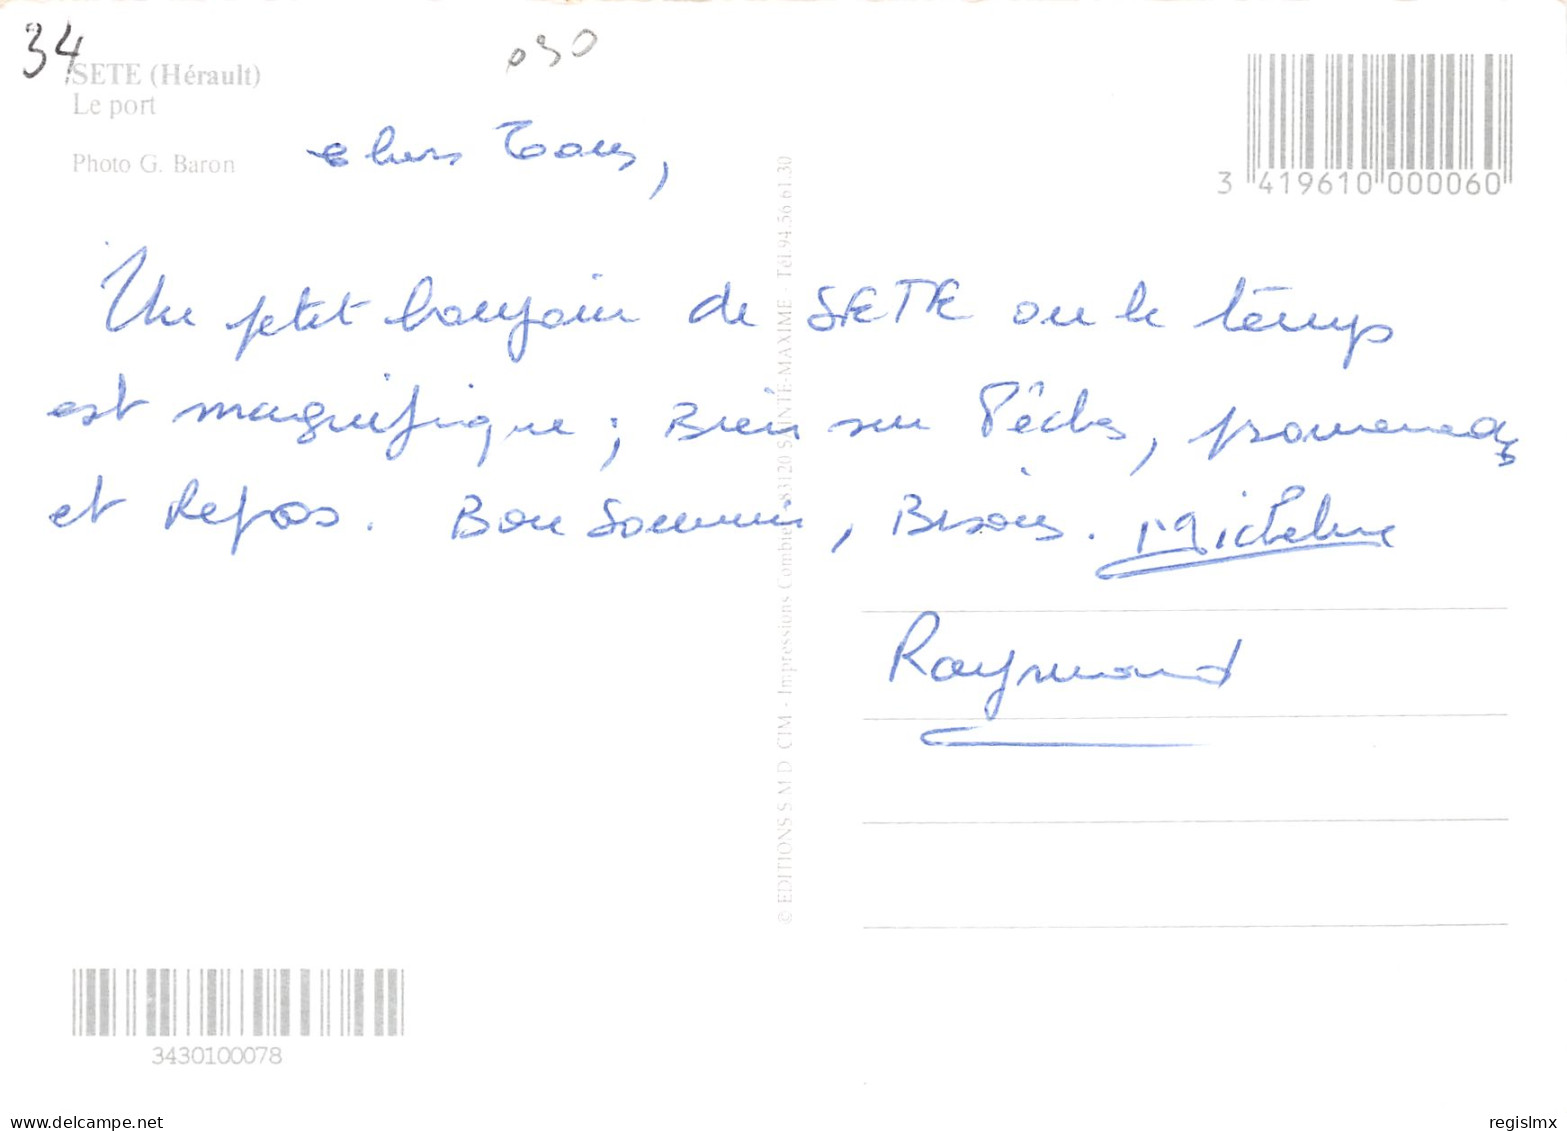 34
030
SETE (Hérault)
Le port
Photo G. Baron
3 419610 000060
chers Tous,
Un petit bonjour de SETE ou le temps
est magnifique ; Bien sur Pêches, promenades
et Repos. Bon Souvenir, Bisous. Micheline
Raymond
© EDITIONS S M D CIM - Impressions Combier 83120 SAINTE-MAXIME - Tél. 94.56 61.30
3430100078
delcampe.net
regislmx